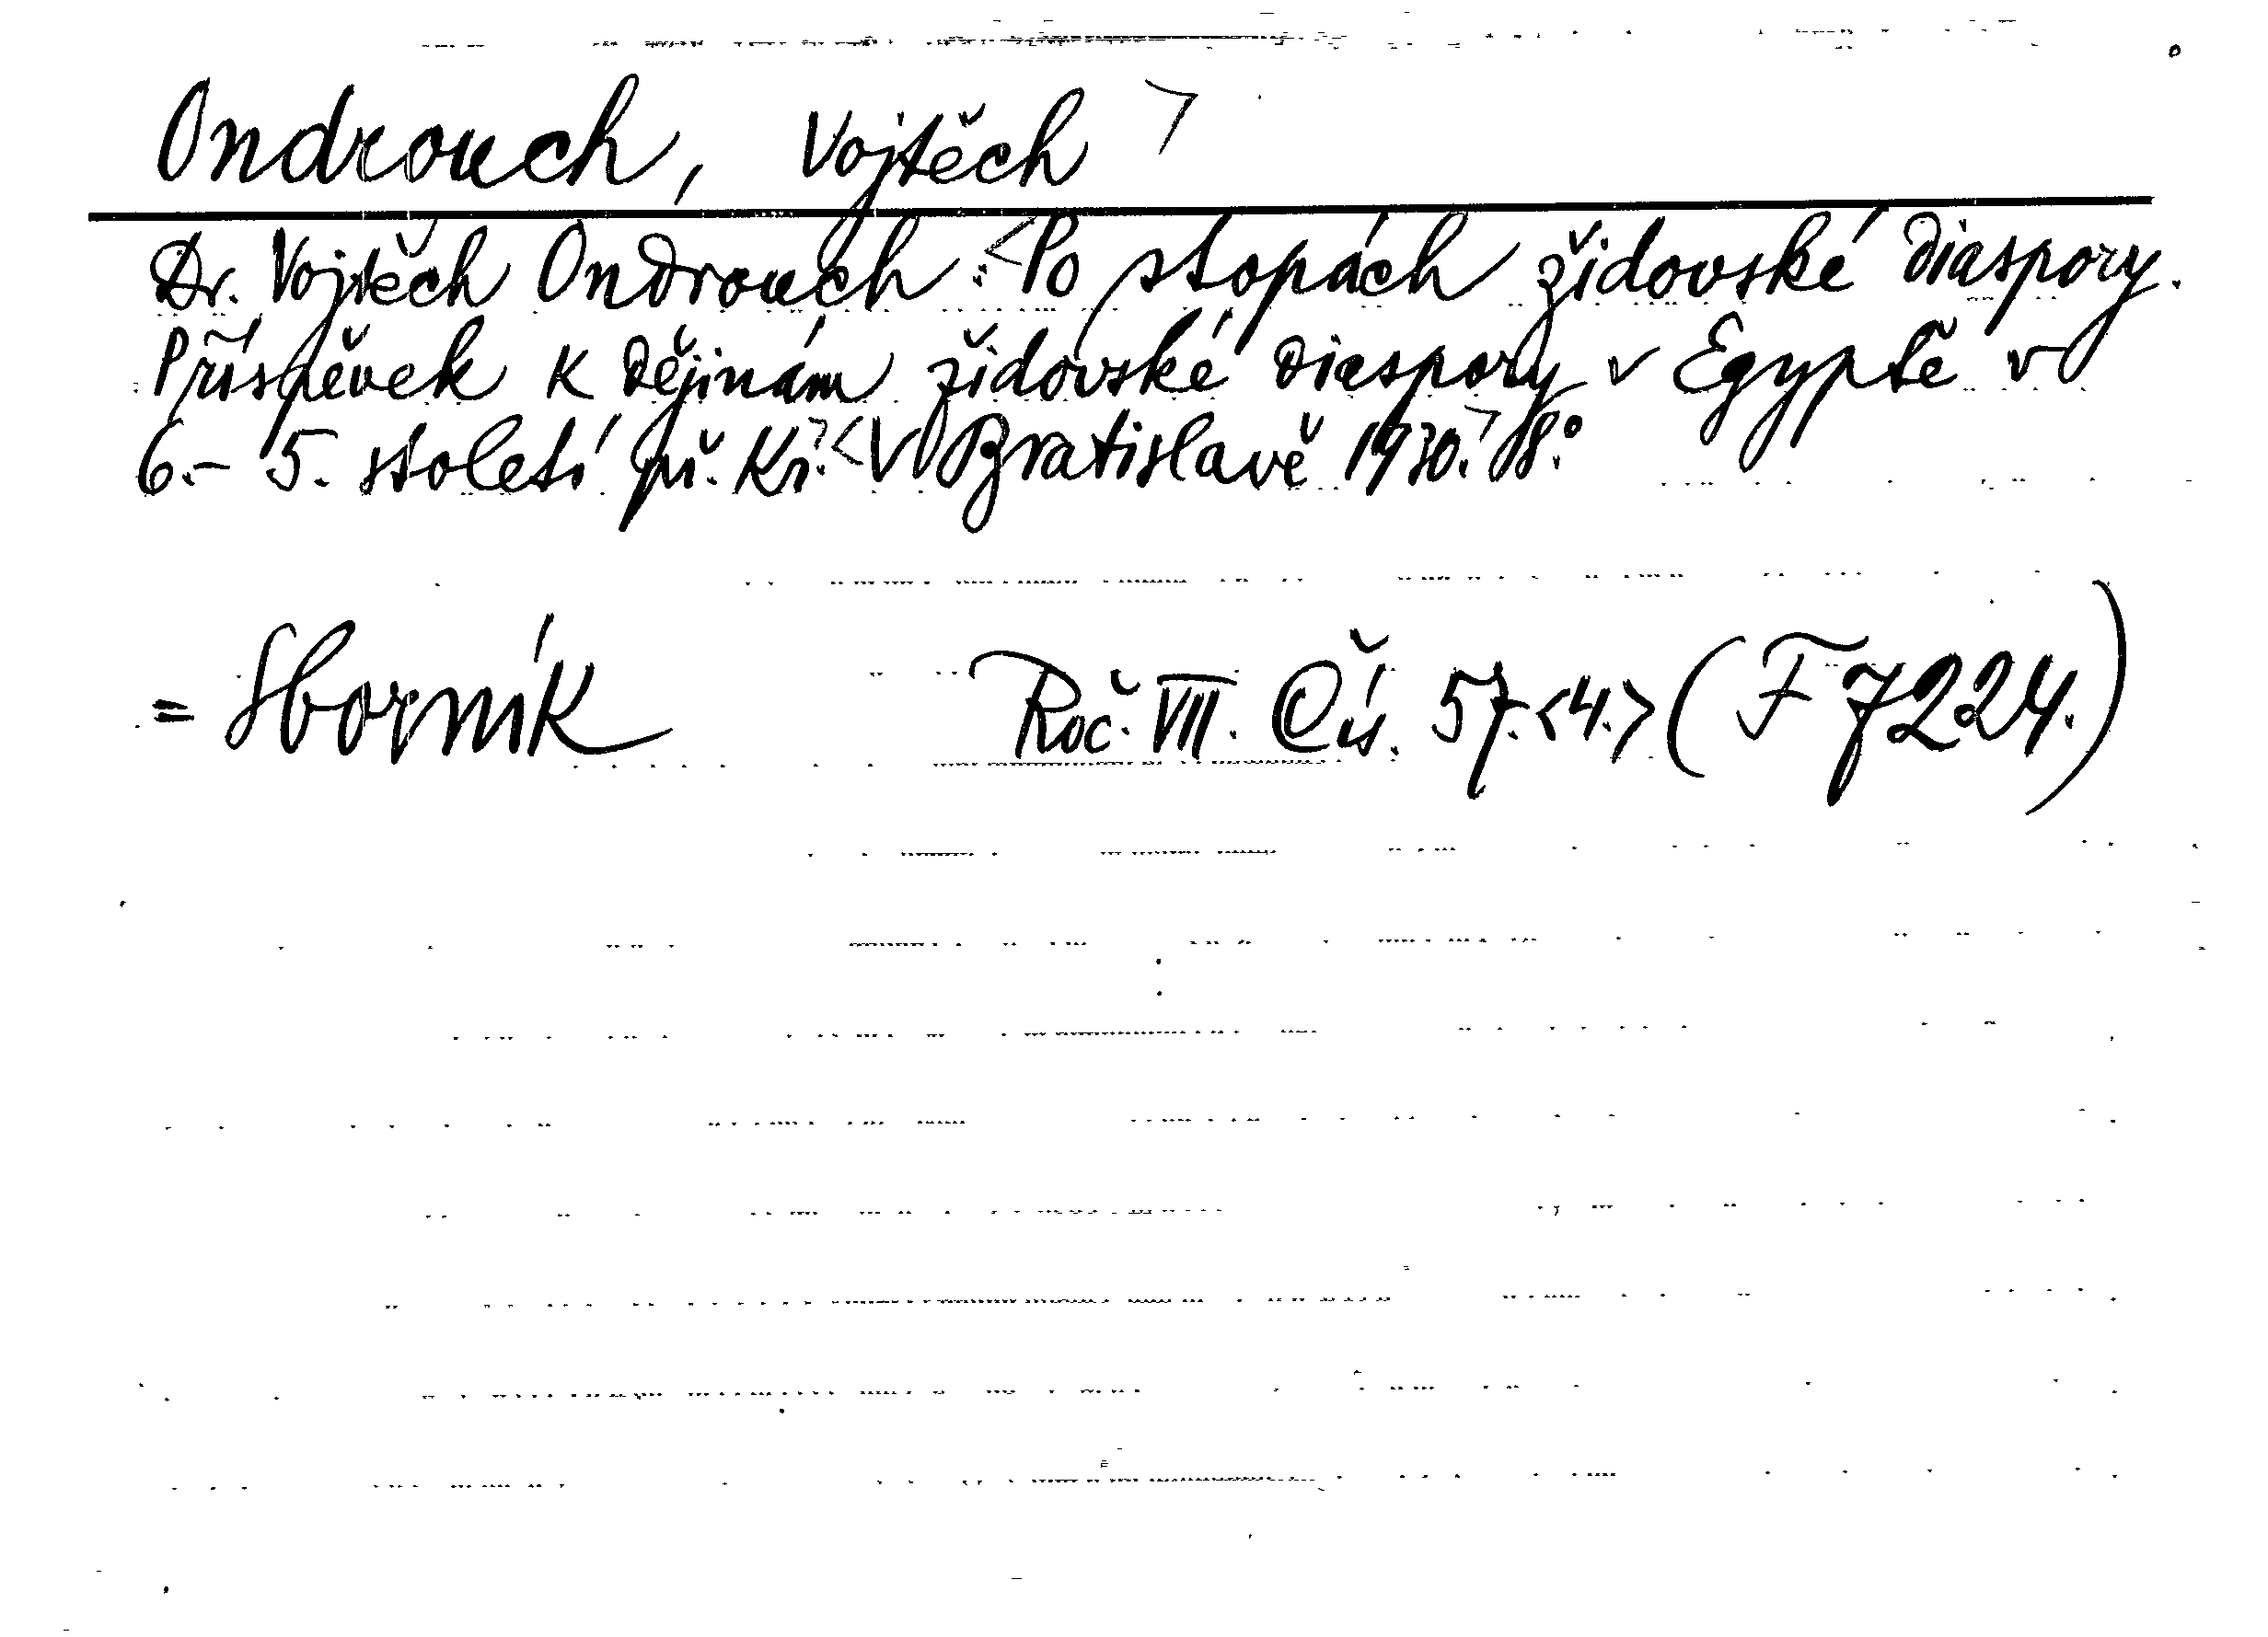 Ondrouch, Vojtěch >
Dr. Vojtěch Ondrouch: <Po stopách židovské diaspory.
Příspěvek k dějinám židovské diaspory v Egyptě v
6.- 5. století př. Kr.> <V Bratislavě 1930.> 8.°
= Sborník Roč. VII. Čís. 57. <4.> (F 7224.)